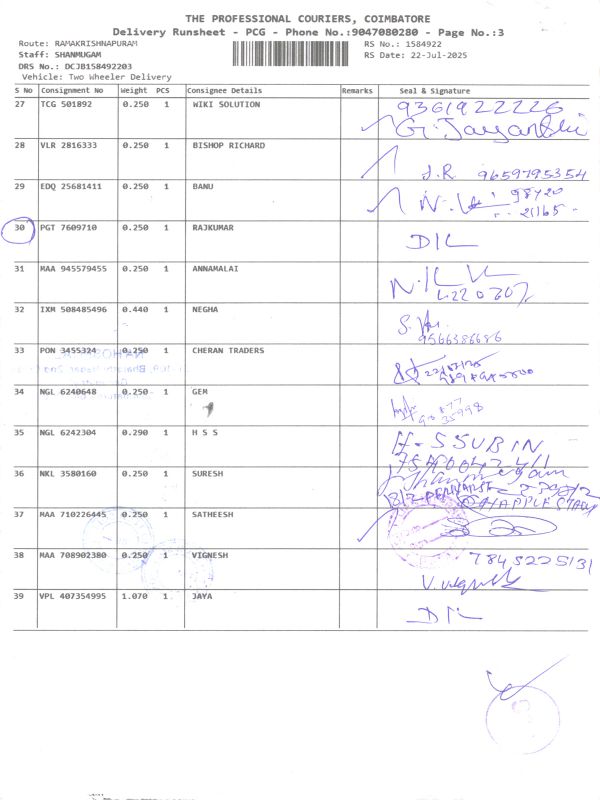 THE PROFESSIONAL COURIERS, COIMBATORE
Delivery Runsheet - PCG - Phone No.:9047080280 - Page No.:3
Route: RAMAKRISHNAPURAM RS No.: 1584922
Staff: SHANMUGAM RS Date: 22-Jul-2025
DRS No.: DCJB158492203
Vehicle: Two Wheeler Delivery
S No Consignment No Weight PCS Consignee Details Remarks Seal & Signature
27 TCG 501892 0.250 1 WIKI SOLUTION 9361922226
28 VLR 2816333 0.250 1 BISHOP RICHARD
J.R 9659795354
29 EDQ 25681411 0.250 1 BANU
30 PGT 7609710 0.250 1 RAJKUMAR
D/L
31 MAA 945579455 0.250 1 ANNAMALAI
32 IXM 508485496 0.440 1 NEGHA
9566386686
33 PON 3455324 0.250 1 CHERAN TRADERS
34 NGL 6240648 0.250 1 GEM
35 NGL 6242304 0.290 1 H S S
H-SSUBIN
36 NKL 3580160 0.250 1 SURESH
37 MAA 710226445 0.250 1 SATHEESH
38 MAA 708902380 0.250 1 VIGNESH 7845225131
V. Vignesh
39 VPL 407354995 1.070 1 JAYA
D/L